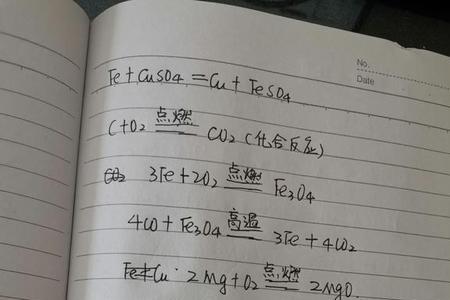 No.
Date
Fe+CuSO4=Cu+FeSO4
C+O2 点燃 CO2 (化合反应)
CO2 3Fe+2O2 点燃 Fe3O4
4CO+Fe3O4 高温 3Fe+4CO2
Fe+Cu 2Mg+O2 点燃 2MgO